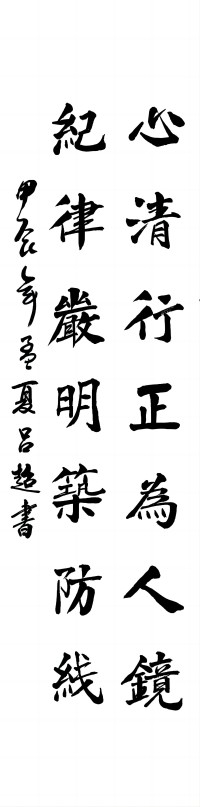 心清行正為人鏡
紀律嚴明築防线
甲辰年孟夏吕超書